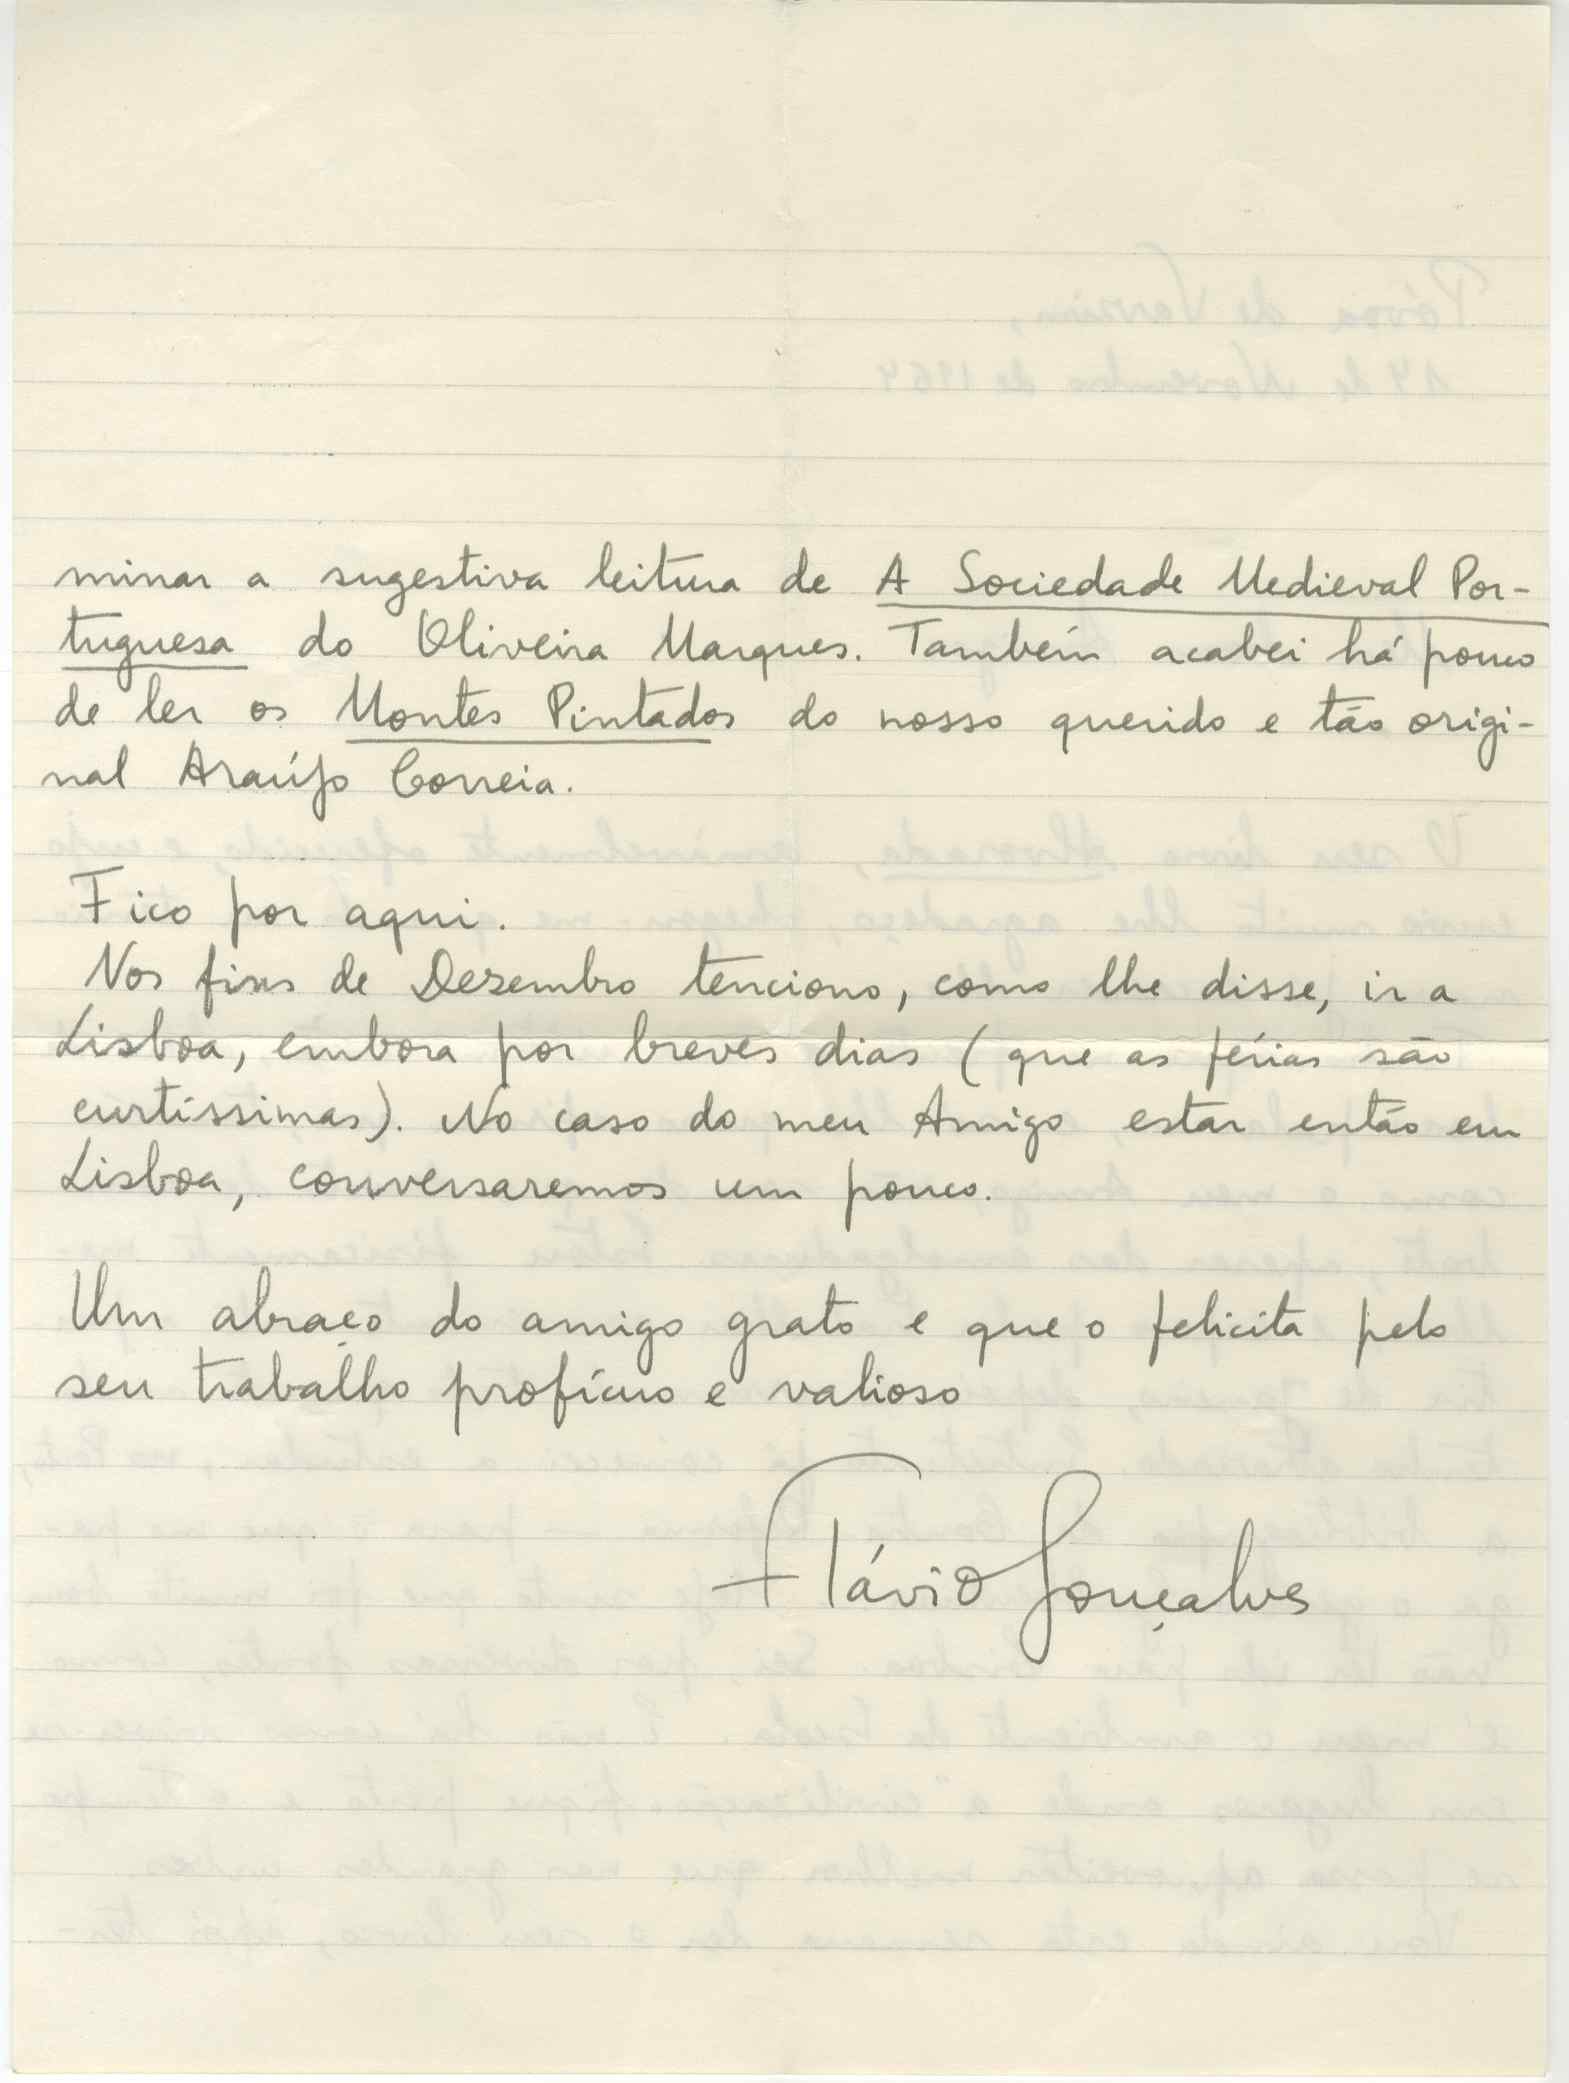 minar a sugestiva leitura de A Sociedade Medieval Por-
tuguesa do Oliveira Marques. Também acabei há pouco
de ler os Montes Pintados do nosso querido e tão origi-
nal Araújo Correia.
Fico por aqui.
Nos fins de Dezembro tenciono, como lhe disse, ir a
Lisboa, embora por breves dias (que as férias são
curtíssimas). No caso do meu Amigo estar então em
Lisboa, conversaremos um pouco.
Um abraço do amigo grato e que o felicita pelo
seu trabalho profícuo e valioso
Flávio Gonçalves